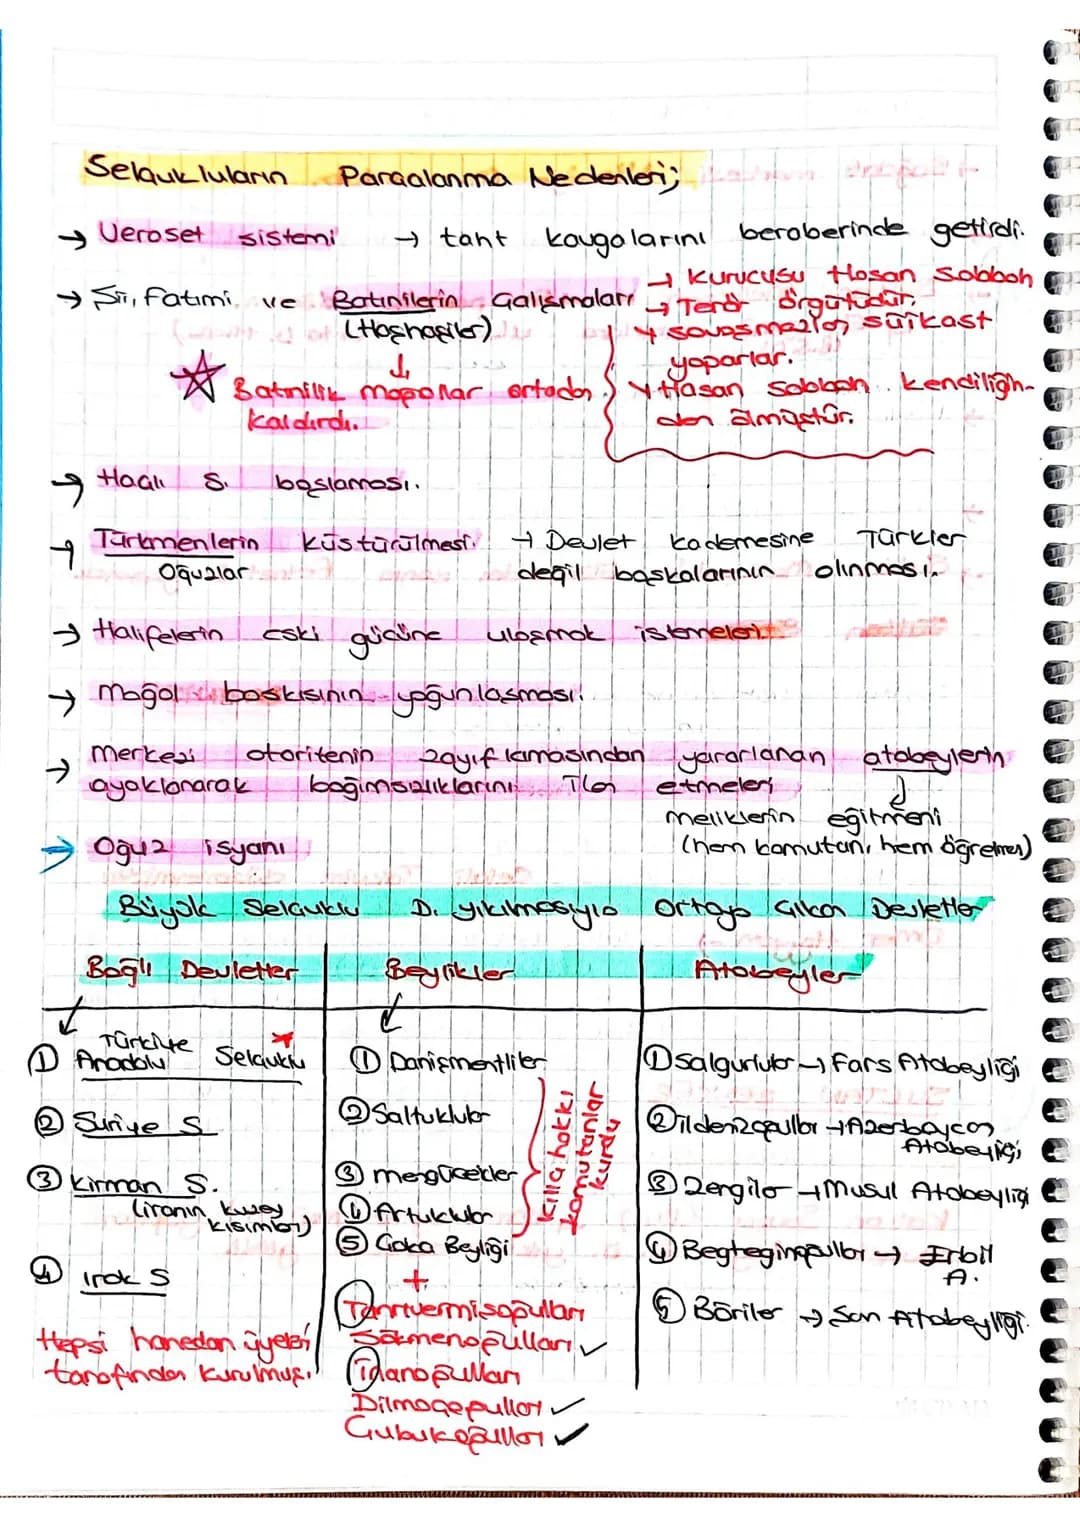 Selçukluların Parçalanma Nedenleri;
→ Veraset sistemi → taht kavgalarını beraberinde getirdi.
→ Şii, Fatımi ve Batınilerin Çalışmaları → Kurucusu Hasan Sabbah
(Haşhaşiler) → Terör örgütüdür.
→ savaşmazlar suikast
yaparlar.
☆ Batınilik Moğollar ortadan → Hasan Sabbah kendiliğin-
kaldırdı. den ölmüştür.
→ Haçlı S. başlaması.
→ Türkmenlerin küstürülmesi. → Devlet kademesine Türkler
Oğuzlar değil başkalarının alınması.
→ Halifelerin eski gücüne ulaşmak istemeleri.
→ Moğol baskısının yoğunlaşması.
→ Merkezi otoritenin zayıflamasından yararlanan atabeylerin
ayaklanarak bağımsızlıklarını ilan etmeleri
meliklerin eğitmeni
→ Oğuz isyanı (hem komutan, hem öğretmen)
Büyük Selçuklu D. yıkılmasıyla Ortaya Çıkan Devletler
Bağlı Devletler Beylikler Atabeyler
Türkiye
① Anadolu Selçuklu
② Suriye S
③ Kirman S.
(iranın kuzey
kısımları)
④ Irak S
Hepsi hanedan üyeleri
tarafından kurulmuş.
① Danişmentliler
② Saltuklular
③ mengücekler
④ Artuklular
⑤ Çaka Beyliği
kılıç hakkı
komutanlar
kurdu
+
Tanrıvermişoğulları
Sökmenoğulları ✓
İnanoğulları
Dilmaçoğulları ✓
Çubukoğulları ✓
① Salgurlular → Fars Atabeyliği
② ildenizoğulları → Azerbaycan
Atabeyliği
③ Zengiler → Musul Atabeyliği
④ Begteginoğulları → Erbil
A.
⑤ Böriler → Şam Atabeyliği.